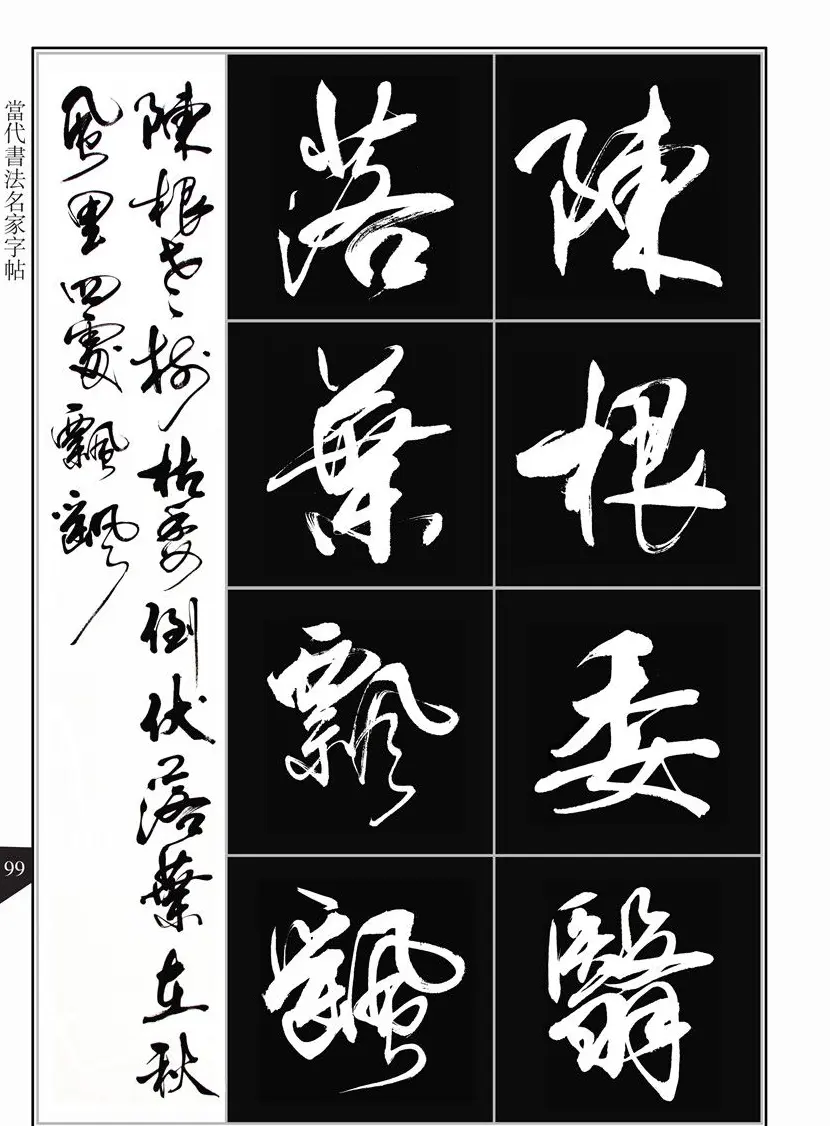 陳根委翳
落葉飄颻
陳根老樹枯委倒伏落葉在秋
風里四處飄颻
當代書法名家字帖
99